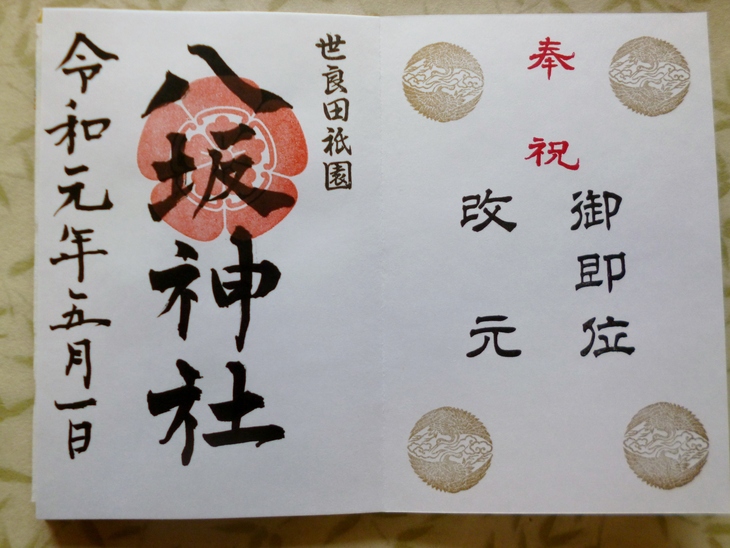 奉祝
御即位
改元
世良田祇園
八坂神社
令和元年五月一日